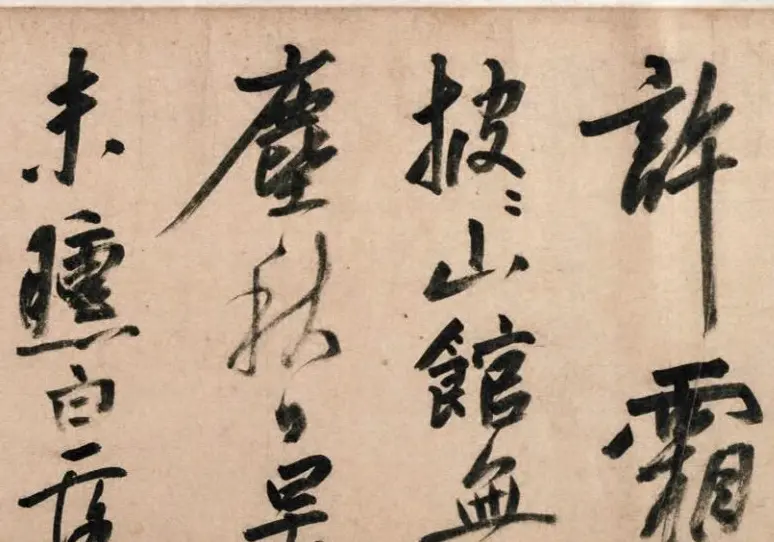 許霜
披〻山館無
塵秋早
未曛白